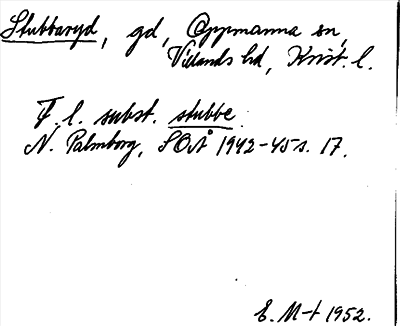 Stubbaryd, gd, Oppmanna sn,
Villands hd, Krist. l.
F. l. subst. stubbe
N. Palmborg, SOÅ 1942-45 s. 17.
E. M-t 1952.